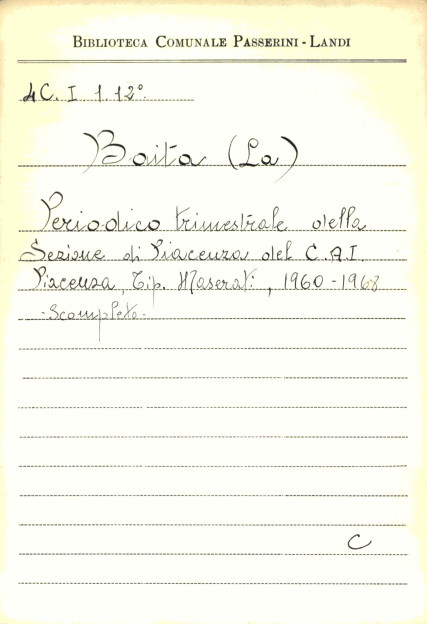 BIBLIOTECA COMUNALE PASSERINI - LANDI
4C. I 1.12°
Baita (La)
Periodico trimestrale della
Sezione di Piacenza del C.A.I.
Piacenza, Tip. Maserati, 1960-1968
- Scompleto -
C